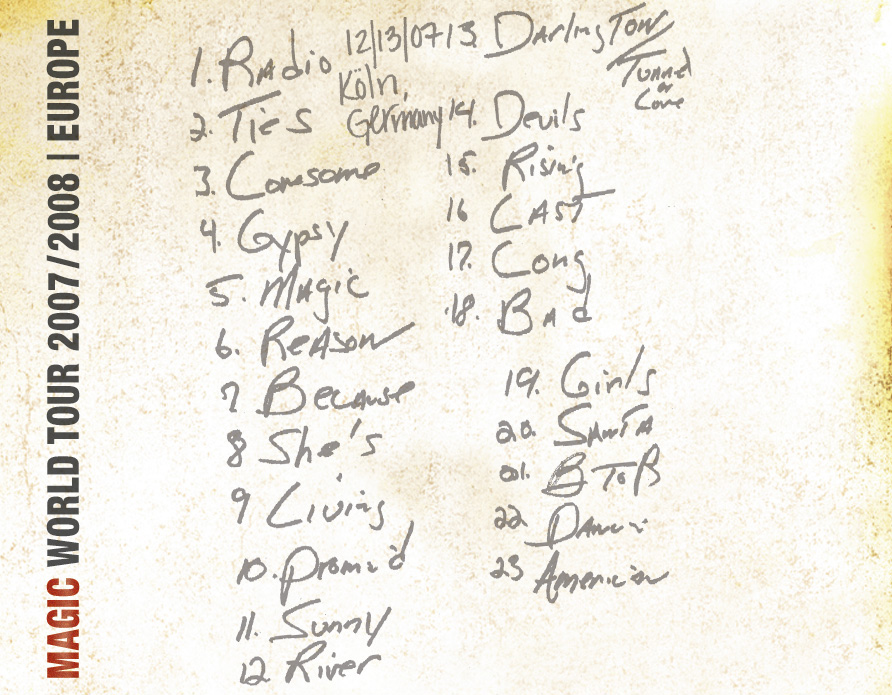 MAGIC WORLD TOUR 2007/2008 | EUROPE
12/13/07
Köln,
Germany
1. Radio
2. Ties
3. Lonesome
4. Gypsy
5. Magic
6. Reason
7 Because
8 She's
9 Living
10. Promis'd
11. Sunny
12 River
13. Darling Town/
Tunnel
or
Love
14. Devils
15. Rising
16 Last
17. Long
18. Bad
19. Girls
20. Santa
21. B To R
22. Dancin
23 American